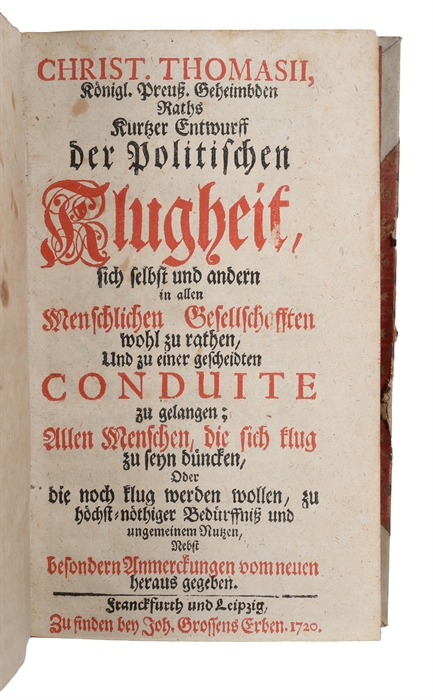 CHRIST. THOMASII,
Königl. Preuß. Geheimbden
Raths
Kurtzer Entwurff
der Politischen
Klugheit,
sich selbst und andern
in allen
Menschlichen Gesellschafften
wohl zu rathen,
Und zu einer gescheidten
CONDUITE
zu gelangen;
Allen Menschen, die sich klug
zu seyn düncken,
Oder
die noch klug werden wollen, zu
höchst-nöthiger Bedürffniß und
ungemeinem Nutzen,
Nebst
besondern Anmerckungen vom neuen
heraus gegeben.
Franckfurth und Leipzig,
Zu finden bey Joh. Grossens Erben. 1720.